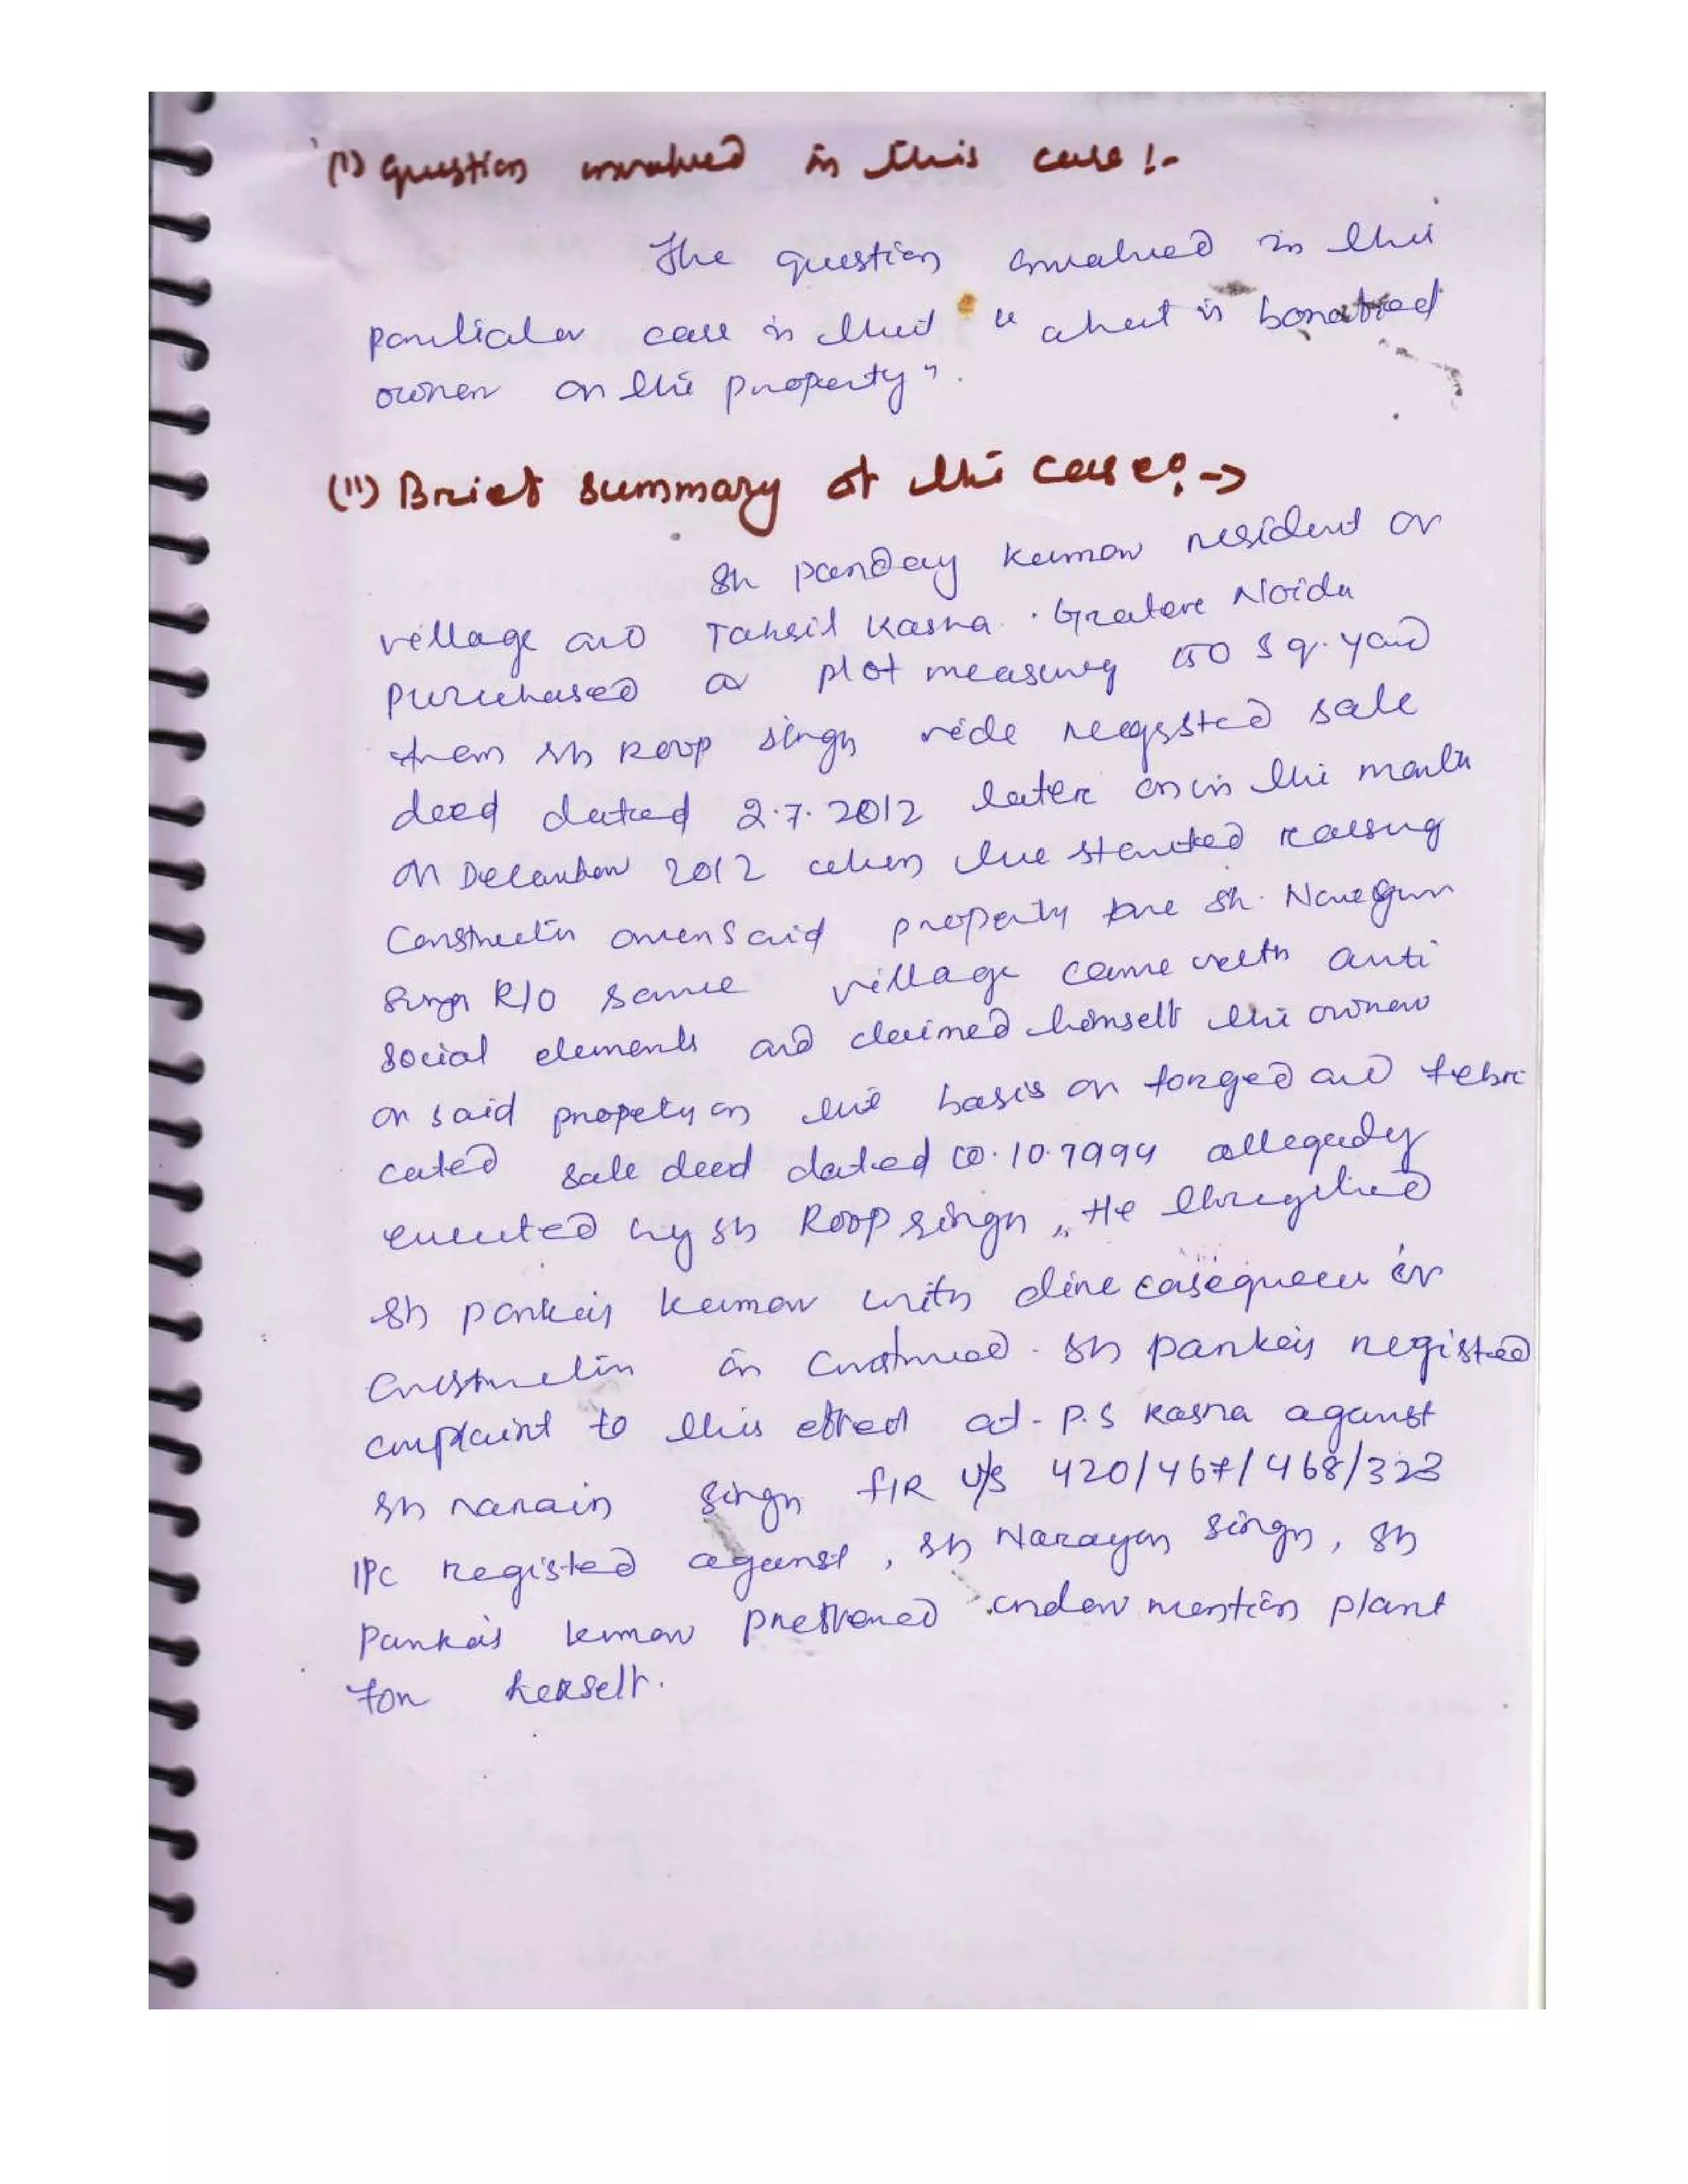 (I) Question involved in this case :-
The question involved in this
particular case is that " what is bonafied
owner on the property".
(II) Brief summary of the case :->
Sh Panday Kumar resident of
village and Tahsil Kasna. Greatere Noida
purchased a plot measuring 150 sq. yard
from Sh Roop Singh vide registed sale
deed dated 2.7.2012 later on in the month
of December 2012 when he started raising
construction over said property one Sh.
Singh R/O same village came with anti
social elements and claimed himself the owner
of said property on the basis of forged and febri
cated sale deed dated 10.10.1994 allegedly
executed by Sh Roop Singh, He threatened
Sh Pankaj Kumar with dire if
construction is continued. Sh Pankaj registed
complaint to this effect at P.S Kasna against
Sh Narain Singh FIR U/S 420/467/468/323
IPC registed against, Sh Narayan Singh, Sh
Pankaj Kumar under mention
for herself.